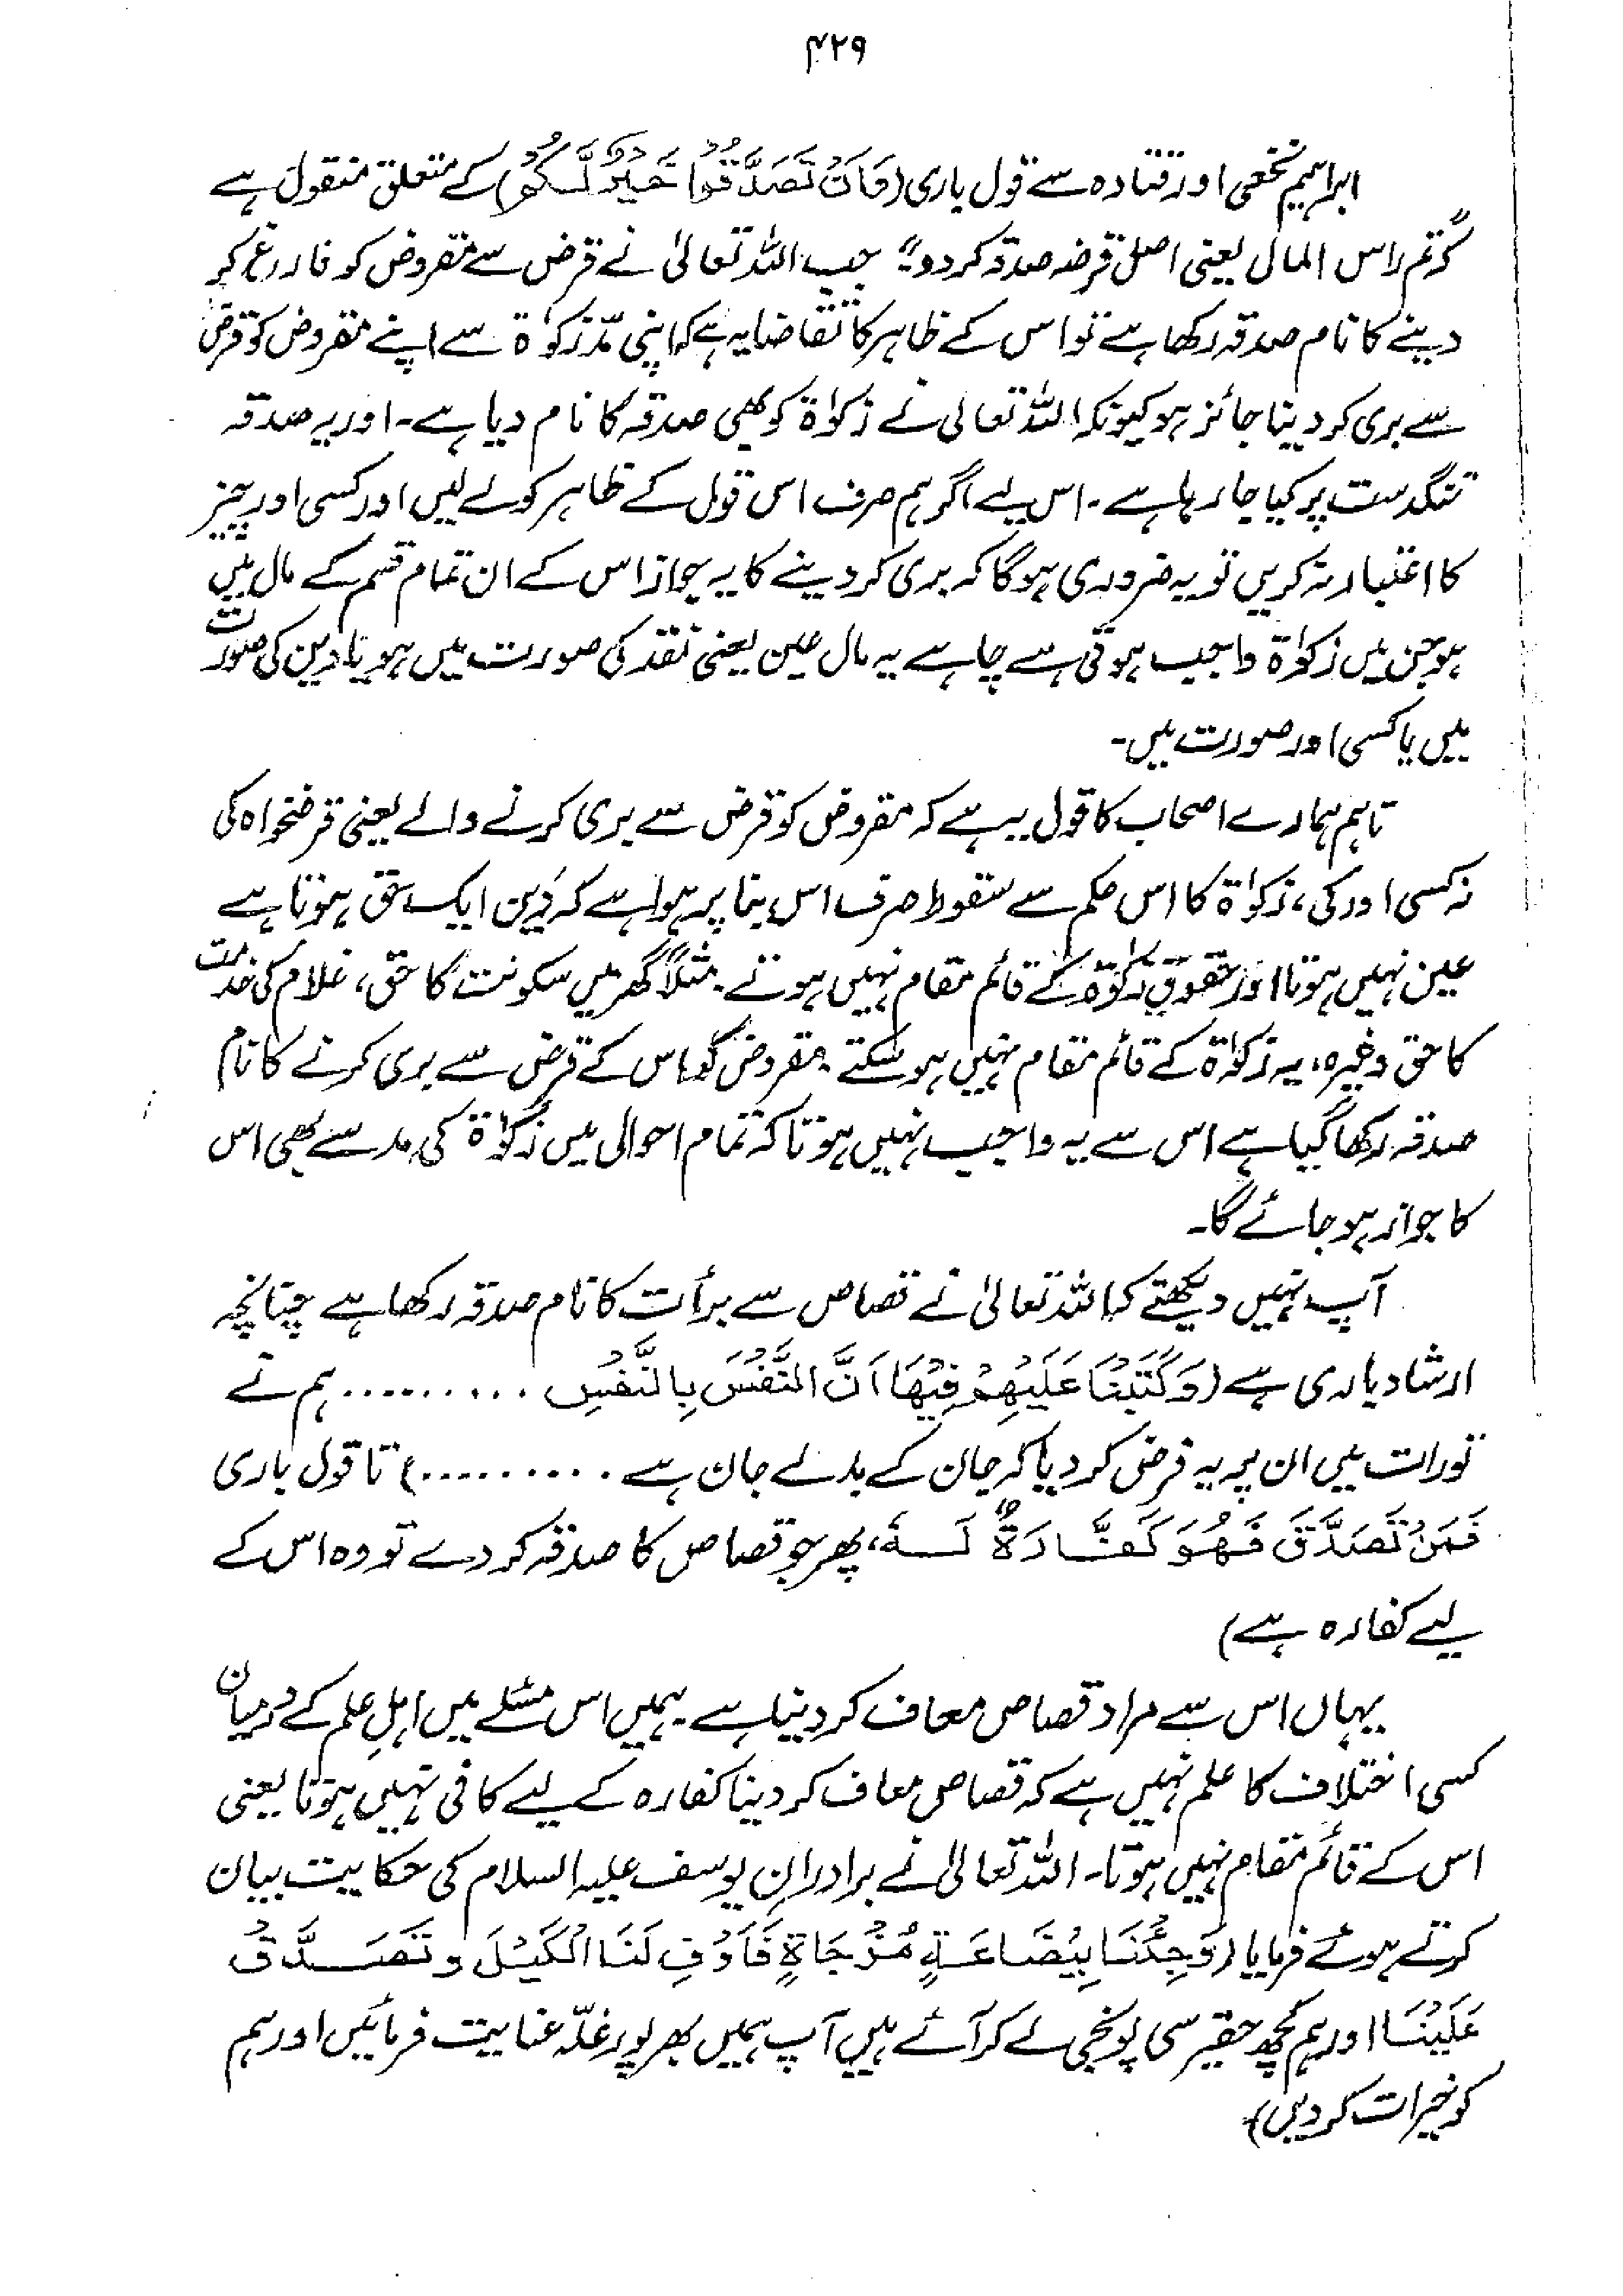 ۴۲۹
ابراہیم نخعی اور قتادہ سے قول باری (وَاَنْ تَصَدَّقُوْا خَيْرٌ لَّكُمْ) کے متعلق منقول ہے
کہ تم راس المال یعنی اصل قرضہ صدقہ کر دو"۔ جب اللہ تعالیٰ نے قرض سے مقروض کو فارغ کر
دینے کا نام صدقہ رکھا ہے تو اس کے ظاہر کا تقاضا یہ ہے کہ اپنی مدّ زکوٰۃ سے اپنے مقروض کو قرض
سے بری کر دینا جائز ہو کیونکہ اللہ تعالیٰ نے زکوٰۃ کو بھی صدقہ کا نام دیا ہے۔ اور یہ صدقہ
تنگدست پر کیا جا رہا ہے۔ اس لیے اگر ہم صرف اس قول کے ظاہر کو لے لیں اور کسی اور چیز
کا اعتبار نہ کریں تو یہ ضروری ہوگا کہ بری کر دینے کا یہ جواز اس کے ان تمام قسم کے مال میں
ہو جن میں زکوٰۃ واجب ہوتی ہے چاہے یہ مال عین یعنی نقد کی صورت میں ہو یا دین کی صورت
میں یا کسی اور صورت میں۔
تاہم ہمارے اصحاب کا قول یہ ہے کہ مقروض کو قرض سے بری کرنے والے یعنی قرضخواہ کی
نہ کسی اور کی، زکوٰۃ کا اس حکم سے سقوط صرف اس بنا پر ہوا ہے کہ دَین ایک حق ہوتا ہے
عین نہیں ہوتا اور حقوق زکوٰۃ کے قائم مقام نہیں ہوتے۔ مثلاً گھر میں سکونت کا حق، غلام کی خدمت
کا حق وغیرہ، یہ زکوٰۃ کے قائم مقام نہیں ہو سکتے۔ مقروض کو اس کے قرض سے بری کرنے کا نام
صدقہ رکھا گیا ہے اس سے یہ واجب نہیں ہوتا کہ تمام احوال میں زکوٰۃ کی مد سے بھی اس
کا جواز ہو جائے گا۔
آپ نہیں دیکھتے کہ اللہ تعالیٰ نے قصاص سے برأت کا نام صدقہ رکھا ہے چنانچہ
ارشاد باری ہے (وَكَتَبْنَا عَلَيْهِمْ فِيْهَا اَنَّ النَّفْسَ بِالنَّفْسِ ......... ہم نے
تورات میں ان پر یہ فرض کر دیا کہ جان کے بدلے جان ہے ..........) تا قول باری
فَمَنْ تَصَدَّقَ فَهُوَ كَفَّارَةٌ لَهٗ، پھر جو قصاص کا صدقہ کر دے تو وہ اس کے
لیے کفارہ ہے)
یہاں اس سے مراد قصاص معاف کر دینا ہے ہمیں اس مسئلے میں اہلِ علم کے درمیان
کسی اختلاف کا علم نہیں ہے کہ قصاص معاف کر دینا کفارہ کے لیے کافی نہیں ہوتا یعنی
اس کے قائم مقام نہیں ہوتا۔ اللہ تعالیٰ نے برادرانِ یوسف علیہ السلام کی حکایت بیان
کرتے ہوئے فرمایا (وَجِئْنَا بِبِضَاعَةٍ مُّزْجَاةٍ فَاَوْفِ لَنَا الْكَيْلَ وتَصَدَّقْ
عَلَيْنَا اور ہم کچھ حقیر سی پونجی لے کر آئے ہیں آپ ہمیں بھرپور غلّہ عنایت فرمائیں اور ہم
کو خیرات کر دیں)